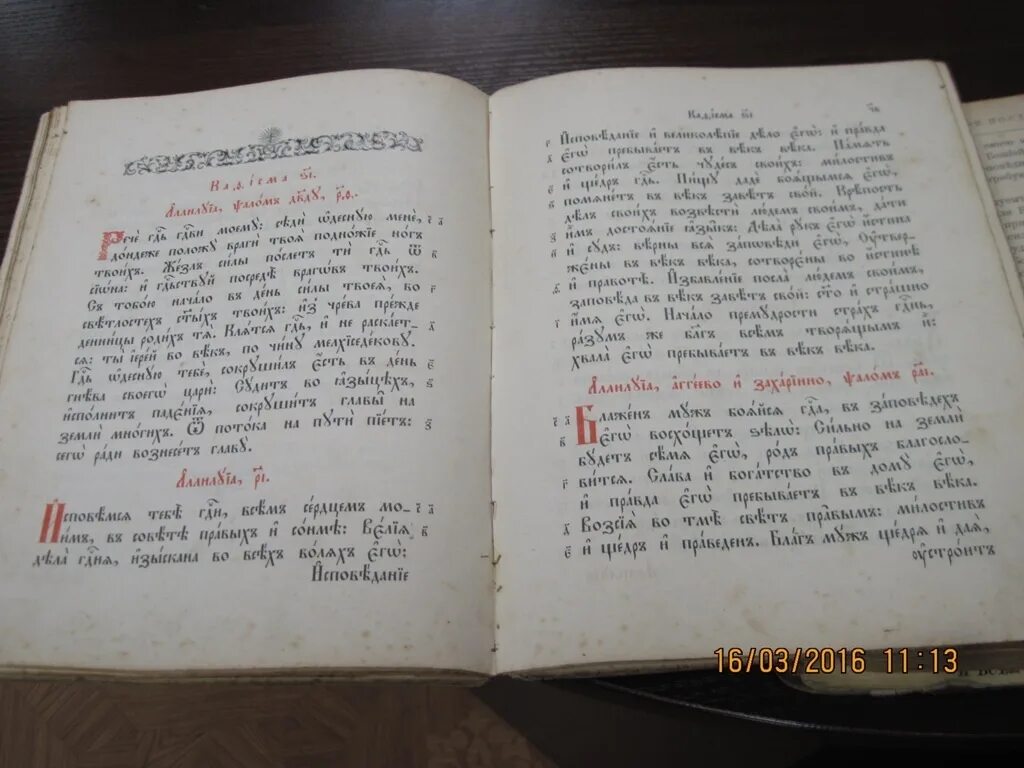 Каѳі́сма ѕ҃і.
Аллилꙋ́іа, ѱало́мъ дв҃дꙋ, р҃ѳ.
Речѐ гдⷭ҇ь гдⷭ҇ви моемꙋ̀: сѣдѝ ѡ҆деснꙋ́ю менѐ, а҃
до́ндеже положꙋ̀ враги̑ твоѧ̑ подно́жїе но́гъ
твои́хъ. Же́злъ си́лы по́слетъ тѝ гдⷭ҇ь ѿ в҃
сїѡ́на: и҆ гдⷭ҇ьствꙋй посредѣ̀ врагѡ́въ твои́хъ.
Съ тобо́ю нача́ло въ де́нь си́лы твоеѧ̀, во г҃
свѣ́тлостехъ ст҃ы́хъ твои́хъ: и҆з̾ чре́ва пре́жде
денни́цы роди́хъ тѧ̀. Клѧ́тсѧ гдⷭ҇ь, и҆ не раска́ет- д҃
сѧ: ты̀ і҆ере́й во вѣ́къ, по чи́нꙋ мелхїседе́ковꙋ.
Гдⷭ҇ь ѡ҆деснꙋ́ю тебѐ, сокрꙋши́лъ є҆́сть въ де́нь є҃
гнѣ́ва своегѡ̀ цари̑: Сꙋ́дитъ во ꙗ҆зы́цѣхъ, ѕ҃
и҆спо́лнитъ падє́нїѧ, сокрꙋши́тъ главы̑ на
землѝ мно́гихъ. Ѿ пото́ка на пꙋтѝ пїе́тъ: з҃
сегѡ̀ ра́ди вознесе́тъ главꙋ̀.
Аллилꙋ́іа, р҃і.
И҆сповѣ́мсѧ тебѣ̀ гдⷭ҇и, всѣ́мъ се́рдцемъ мо- а҃
и́мъ, въ совѣ́тѣ пра́выхъ и҆ со́нмѣ: Вє́лїѧ в҃
дѣла̀ гдⷭ҇нѧ, и҆зы́скана во всѣ́хъ во́лѧхъ є҆гѡ̀:
И҆сповѣ́данїе
Каѳі́сма ѕ҃і
г҃ И҆сповѣ́данїе и҆ великолѣ́пїе дѣ́ло є҆гѡ̀: и҆ пра́вда
д҃ є҆гѡ̀ пребыва́етъ въ вѣ́къ вѣ́ка. Па́мѧть
сотвори́лъ є҆́сть чꙋде́съ свои́хъ: ми́лостивъ
є҃ и҆ ще́дръ гдⷭ҇ь. Пи́щꙋ дадѐ боѧ́щымсѧ є҆гѡ̀,
ѕ҃ помѧне́тъ въ вѣ́къ завѣ́тъ сво́й. Крѣ́пость
дѣ́лъ свои́хъ возвѣстѝ лю́демъ свои̑мъ, да́ти
з҃ и҆̀мъ достоѧ́нїе ꙗ҆зы̑къ: Дѣла̀ рꙋ́къ є҆гѡ̀ и҆́стина
и҃ и҆ сꙋ́дъ: вѣ̑рны всѧ̑ за́пѡвѣди є҆гѡ̀, Оу҆твер-
жє́ны въ вѣ́къ вѣ́ка, сотворє́ны во и҆́стинѣ
ѳ҃ и҆ правотѣ̀. И҆збавле́нїе посла̀ лю́демъ свои̑мъ,
заповѣ́да въ вѣ́къ завѣ́тъ сво́й: ст҃о и҆ стра́шно
і҃ и҆́мѧ є҆гѡ̀. Нача́ло премꙋ́дрости стра́хъ гдⷭ҇нь,
ра́зꙋмъ же бл҃гъ всѣ̑мъ творѧ́щымъ и҆̀:
хвала̀ є҆гѡ̀ пребыва́етъ въ вѣ́къ вѣ́ка.
Аллилꙋ́іа, а҆гге́ево и҆ заха́рїино, ѱало́мъ р҃аі.
а҃ Бл҃же́нъ мꙋ́жъ боѧ́йсѧ гдⷭ҇а, въ за́повѣдехъ
в҃ є҆гѡ̀ восхо́щетъ ѕѣлѡ̀: Си́льно на землѝ
бꙋ́детъ сѣ́мѧ є҆гѡ̀, ро́дъ пра́выхъ благосло-
г҃ ви́тсѧ. Сла́ва и҆ бога́тство въ домꙋ̀ є҆гѡ̀,
и҆ пра́вда є҆гѡ̀ пребыва́етъ въ вѣ́къ вѣ́ка.
д҃ Возсїѧ̀ во тмѣ̀ свѣ́тъ пра̑вымъ: ми́лостивъ
є҃ и҆ ще́дръ и҆ првⷣнъ. Бл҃гъ мꙋ́жъ щедрѧ̀ и҆ даѧ̀,
ᲂу҆стро́итъ
16/03/2016 11:13